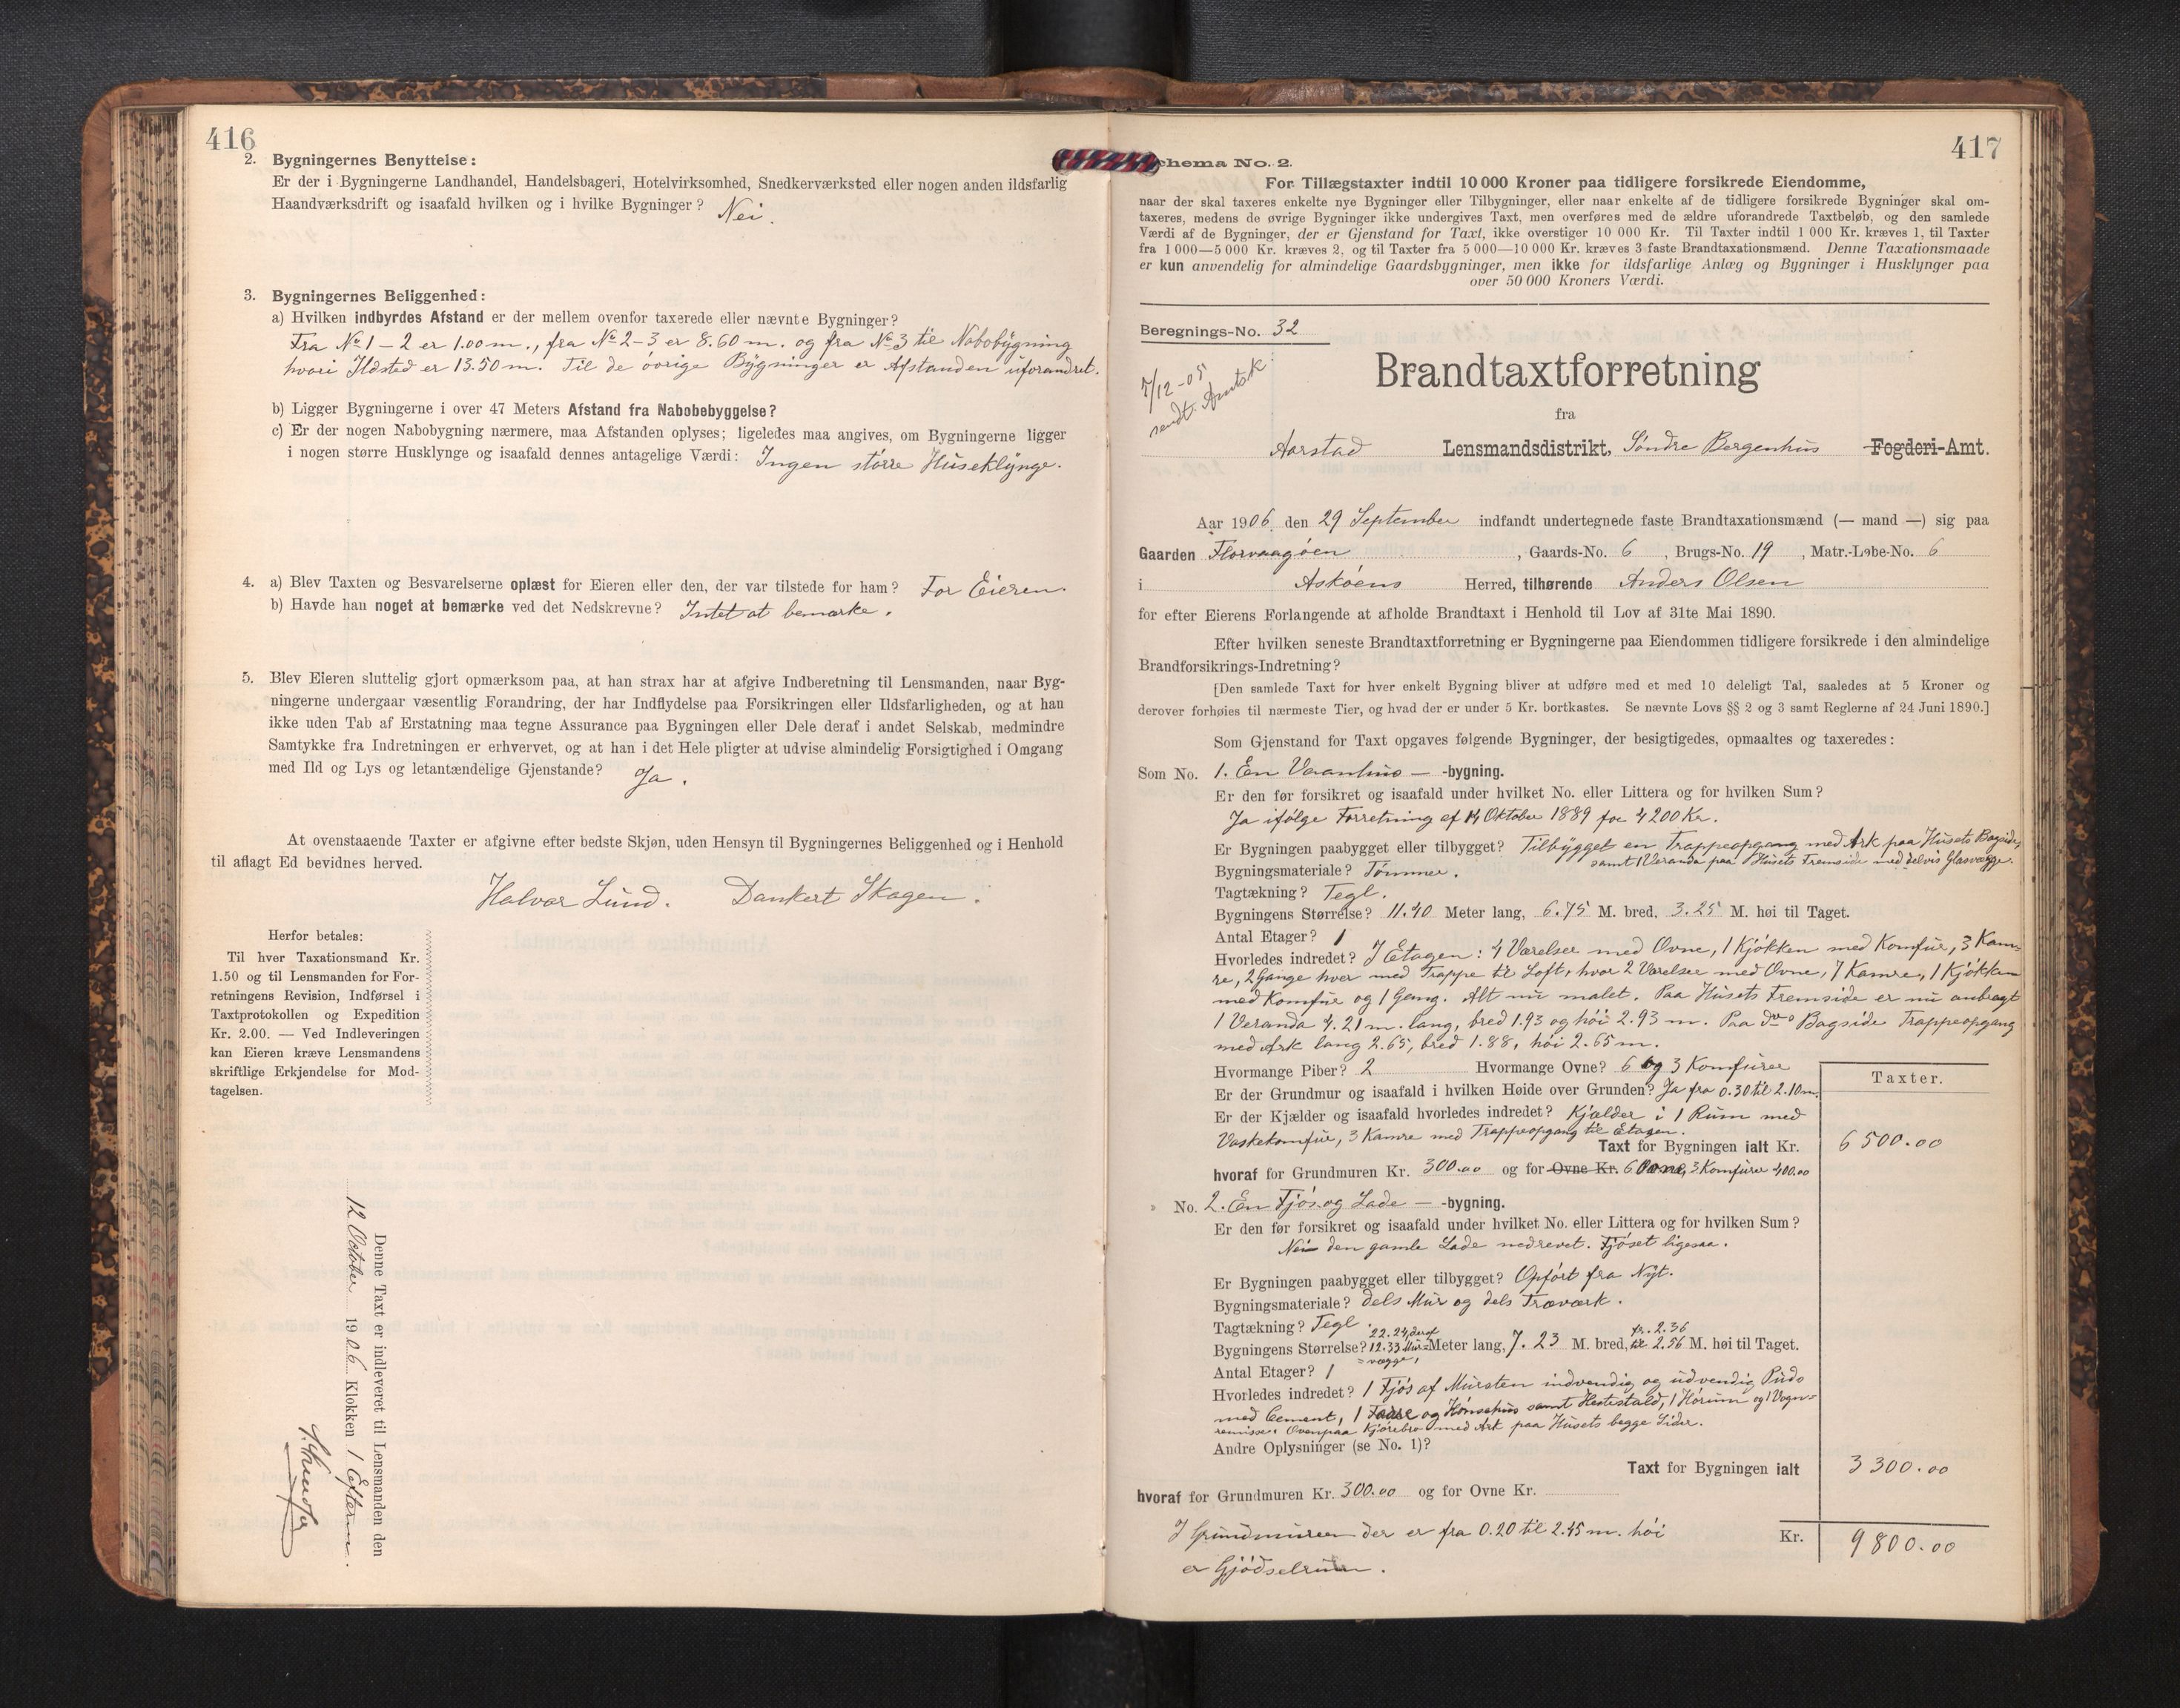 416
2. Bygningernes Benyttelse:
Er der i Bygningerne Landhandel, Handelsbageri, Hotelvirksomhed, Snedkerværksted eller nogen anden ildsfarlig
Haandværksdrift og isaafald hvilken og i hvilke Bygninger? Nei.
3. Bygningernes Beliggenhed:
a) Hvilken indbyrdes Afstand er der mellem ovenfor taxerede eller nævnte Bygninger?
Fra No 1 – 2 er 1.00 m., fra No 2–3 er 8.60 m. og fra No 3 til Nabobygning
hvori Ildsted er 13.50 m. Til de övrige Bygninger er Afstanden uforandret.
b) Ligger Bygningerne i over 47 Meters Afstand fra Nabobebyggelse?
c) Er der nogen Nabobygning nærmere, maa Afstanden oplyses; ligeledes maa angives, om Bygningerne ligger
i nogen større Husklynge og isaafald dennes antagelige Værdi: Ingen större Huseklynge.
4. a) Blev Taxten og Besvarelserne oplæst for Eieren eller den, der var tilstede for ham? For Eieren.
b) Havde han noget at bemærke ved det Nedskrevne? Intet at bemærke.
5. Blev Eieren sluttelig gjort opmærksom paa, at han strax har at afgive Indberetning til Lensmanden, naar Byg-
ningerne undergaar væsentlig Forandring, der har Indflydelse paa Forsikringen eller Ildsfarligheden, og at han
ikke uden Tab af Erstatning maa tegne Assurance paa Bygningen eller Dele deraf i andet Selskab, medmindre
Samtykke fra Indretningen er erhvervet, og at han i det Hele pligter at udvise almindelig Forsigtighed i Omgang
med Ild og Lys og letantændelige Gjenstande? Ja.
At ovenstaaende Taxter er afgivne efter bedste Skjøn, uden Hensyn til Bygningernes Beliggenhed og i Henhold
til aflagt Ed bevidnes herved.
Halvar Lund. Dankert Skagen.
Herfor betales:
Til hver Taxationsmand Kr.
1.50 og til Lensmanden for For-
retningens Revision, Indførsel i
Taxtprotokollen og Expedition
Kr. 2.00. — Ved Indleveringen
kan Eieren kræve Lensmandens
skriftlige Erkjendelse for Mod-
tagelsen.
Denne Taxt er indleveret til Lensmanden den
12 October 1906 Klokken 1 Efterm.
417
chema No. 2.
For Tillægstaxter indtil 10 000 Kroner paa tidligere forsikrede Eiendomme,
naar der skal taxeres enkelte nye Bygninger eller Tilbygninger, eller naar enkelte af de tidligere forsikrede Bygninger skal om-
taxeres, medens de øvrige Bygninger ikke undergives Taxt, men overføres med de ældre uforandrede Taxtbeløb, og den samlede
Værdi af de Bygninger, der er Gjenstand for Taxt, ikke overstiger 10 000 Kr. Til Taxter indtil 1 000 Kr. kræves 1, til Taxter
fra 1 000—5 000 Kr. kræves 2, og til Taxter fra 5 000—10 000 Kr. kræves 3 faste Brandtaxationsmænd. Denne Taxationsmaade
er kun anvendelig for almindelige Gaardsbygninger, men ikke for ildsfarlige Anlæg og Bygninger i Husklynger paa
over 50 000 Kroners Værdi.
Beregnings-No. 32
7/12-05
sendt Amtsk
Brandtaxtforretning
fra
Aarstad Lensmandsdistrikt, Söndre Bergenhus Fogderi-Amt.
Aar 1906 den 29 September indfandt undertegnede faste Brandtaxationsmænd (— mand —) sig paa
Gaarden Florvaagöen, Gaards-No. 6, Brugs-No. 19, Matr.-Løbe-No. 6
i Asköens Herred, tilhørende Anders Olsen
for efter Eierens Forlangende at afholde Brandtaxt i Henhold til Lov af 31te Mai 1890.
Efter hvilken seneste Brandtaxtforretning er Bygningerne paa Eiendommen tidligere forsikrede i den almindelige
Brandforsikrings-Indretning?
[Den samlede Taxt for hver enkelt Bygning bliver at udføre med et med 10 deleligt Tal, saaledes at 5 Kroner og
derover forhøies til nærmeste Tier, og hvad der er under 5 Kr. bortkastes. Se nævnte Lovs §§ 2 og 3 samt Reglerne af 24 Juni 1890.]
Som Gjenstand for Taxt opgaves følgende Bygninger, der besigtigedes, opmaaltes og taxeredes:
Som No. 1. En Vaanhus — -bygning.
Er den før forsikret og isaafald under hvilket No. eller Littera og for hvilken Sum?
Ja ifölge Forretning af 14 Oktober 1889 for 4200 Kr.
Er Bygningen paabygget eller tilbygget? Tilbygget en Trappeopgang med Ark paa Husets Bagside,
samt 1 Veranda paa Husets Fremside med delvis Glasvægge.
Bygningsmateriale? Tömmer.
Tagtækning? Tegl.
Bygningens Størrelse? 11.40 Meter lang, 6.75 M. bred, 3.25 M. høi til Taget.
Antal Etager? 1
Hvorledes indredet? I Etagen: 4 Værelser med Ovne, 1 Kjökken med Komfur, 3 Kam-
re, 2 Gange hver med Trappe til Loft, hvor 2 Værelser med Ovne, 7 Kamre, 1 Kjökken
med Komfur og 1 Gang. Alt nu malet. Paa Husets Fremside er nu anbragt
1 Veranda 4.21 m. lang, bred 1.93 og höi 2.93 m. Paa do Bagside Trappeopgang
med Ark lang 2.65, bred 1.88, höi 2.65 m.
Hvormange Piber? 2 Hvormange Ovne? 6 og 3 Komfurer
Taxter.
Er der Grundmur og isaafald i hvilken Høide over Grunden? Ja fra 0.30 til 2.10 m.
Er der Kjælder og isaafald hvorledes indredet? Kjælder i 1 Rum med
Vaskekomfur, 3 Kamre med Trappeopgang til Etagen.
Taxt for Bygningen ialt Kr. 6 500.00
hvoraf for Grundmuren Kr. 300.00 og for Ovne Kr. 6 Ovne, 3 Komfurer 400.00
No. 2. En Fjös og Lade — -bygning.
Er den før forsikret og isaafald under hvilket No. eller Littera og for hvilken Sum?
Nei den gamle Lade nedrevet. Fjöset ligesaa.
Er Bygningen paabygget eller tilbygget? Opfört fra Nyt.
Bygningsmateriale? dels Mur og dels Træværk.
Tagtækning? Tegl.
22.24, deraf fr. 2.36
Bygningens Størrelse? 12.33 Mur= Meter lang, 7.23 M. bred, til 2.56 M. høi til Taget.
=vægge,
Antal Etager? 1
Hvorledes indredet? 1 Fjös af Mursten indvendig og udvendig Puds
med Cement, 1 Lade og Hönsehus samt Hestestald, 1 Hörum og 1 Vogn=
remisse. Ovenpaa Kjörebro med Ark paa Husets begge Sider.
Andre Oplysninger (se No. 1)?
Taxt for Bygningen ialt 3 300.00
hvoraf for Grundmuren Kr. 300.00 og for Ovne Kr.
I Grundmuren der er fra 0.20 til 2.45 m. höi
er Gjödselrum.
Kr. 9 800.00